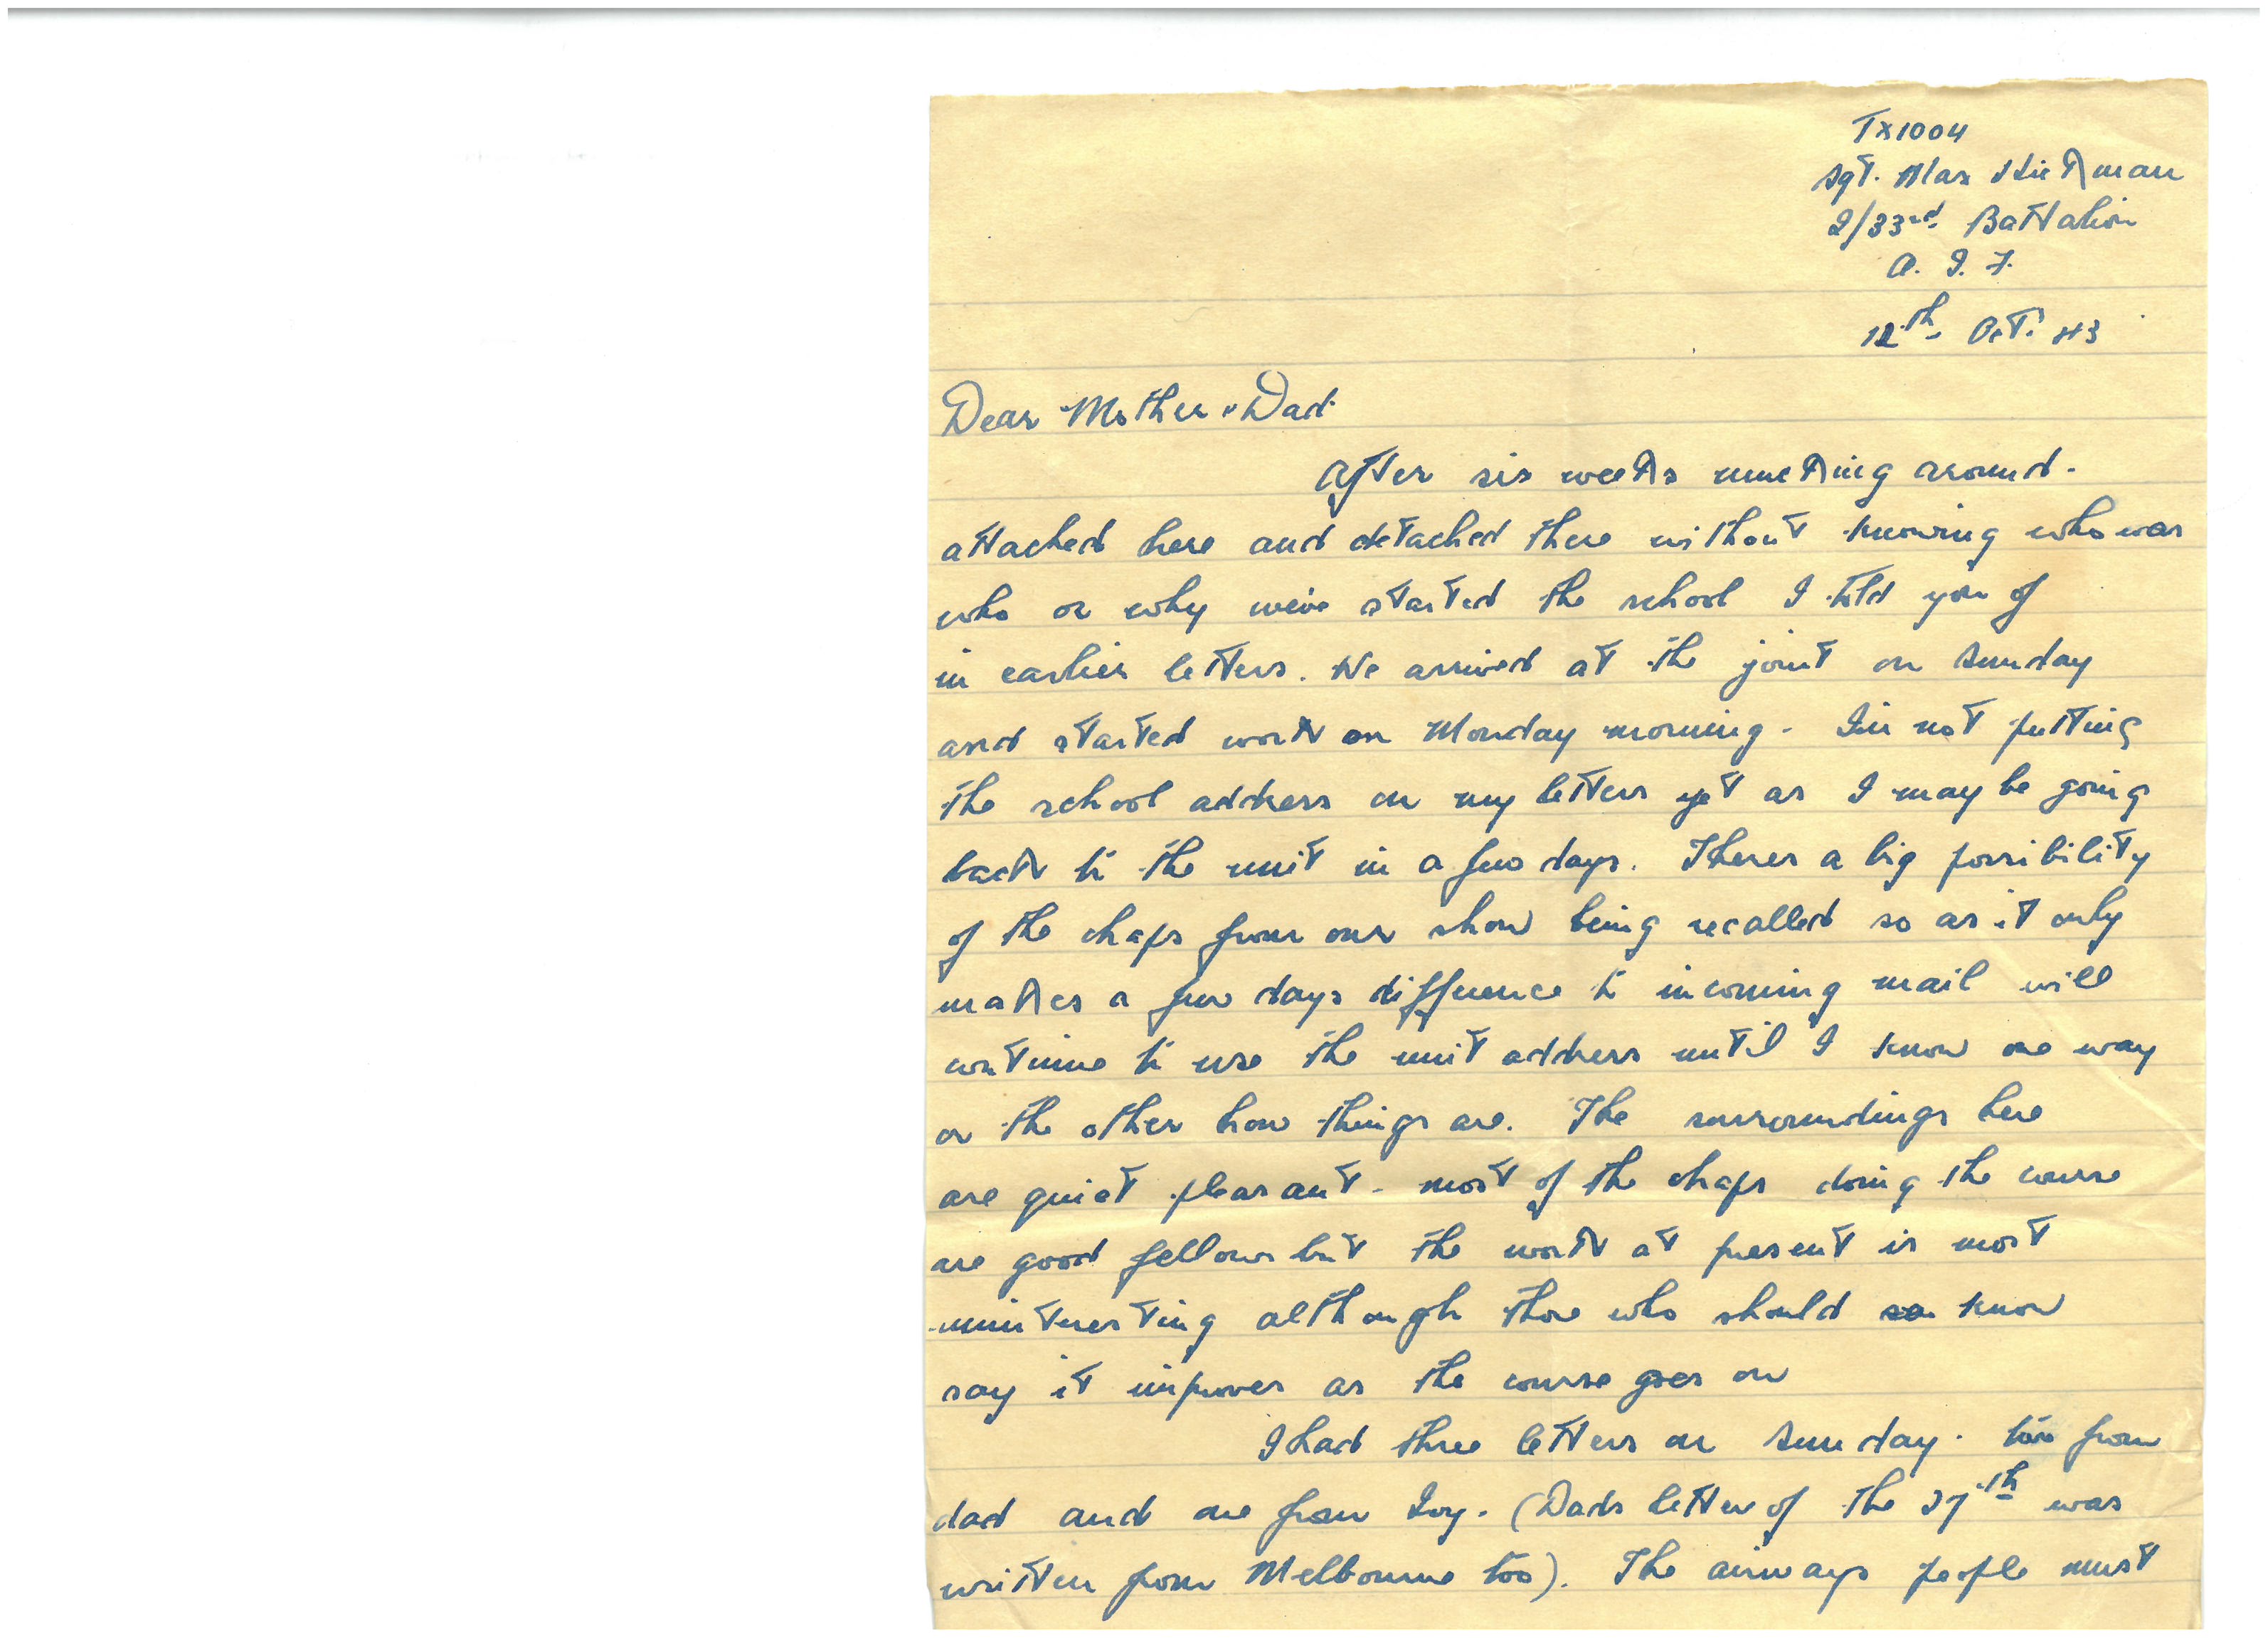 TX1004
Sgt. Max Hickman
2/33rd Battalion
A. I. F.
12th Oct. 43
Dear Mother & Dad
After six weeks mucking around.
attached here and detached there without knowing who was
who or why we've started the school I told you of
in earlier letters. We arrived at the joint on Sunday
and started work on Monday morning. I'm not putting
the school address on my letters yet as I may be going
back to the unit in a few days. Theres a big possibility
of the chaps from our show being recalled so as it only
makes a few days difference to incoming mail will
continue to use the unit address until I know one way
or the other how things are. The surroundings here
are quiet pleasant - most of the chaps doing the course
are good fellows but the work at present is most
uninteresting although those who should know
say it improves as the course goes on
I had three letters on Sunday. two from
dad and one from Ivy. (Dads letter of the 27th was
written from Melbourne too). The airways people must